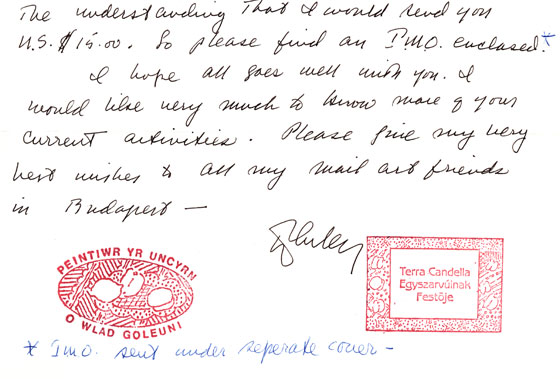 The understanding that I would send you
U.S. $15.00. So please find an I.M.O. enclosed.*
I hope all goes well with you. I
would like very much to know more of your
current activities. Please give my very
best wishes to all my mail art friends
in Budapest —
PEINTIWR YR UNCYRN
O WLAD GOLEUNI
Terra Candella
Egyszarvúinak
Festője
* I.M.O. sent under seperate cover —